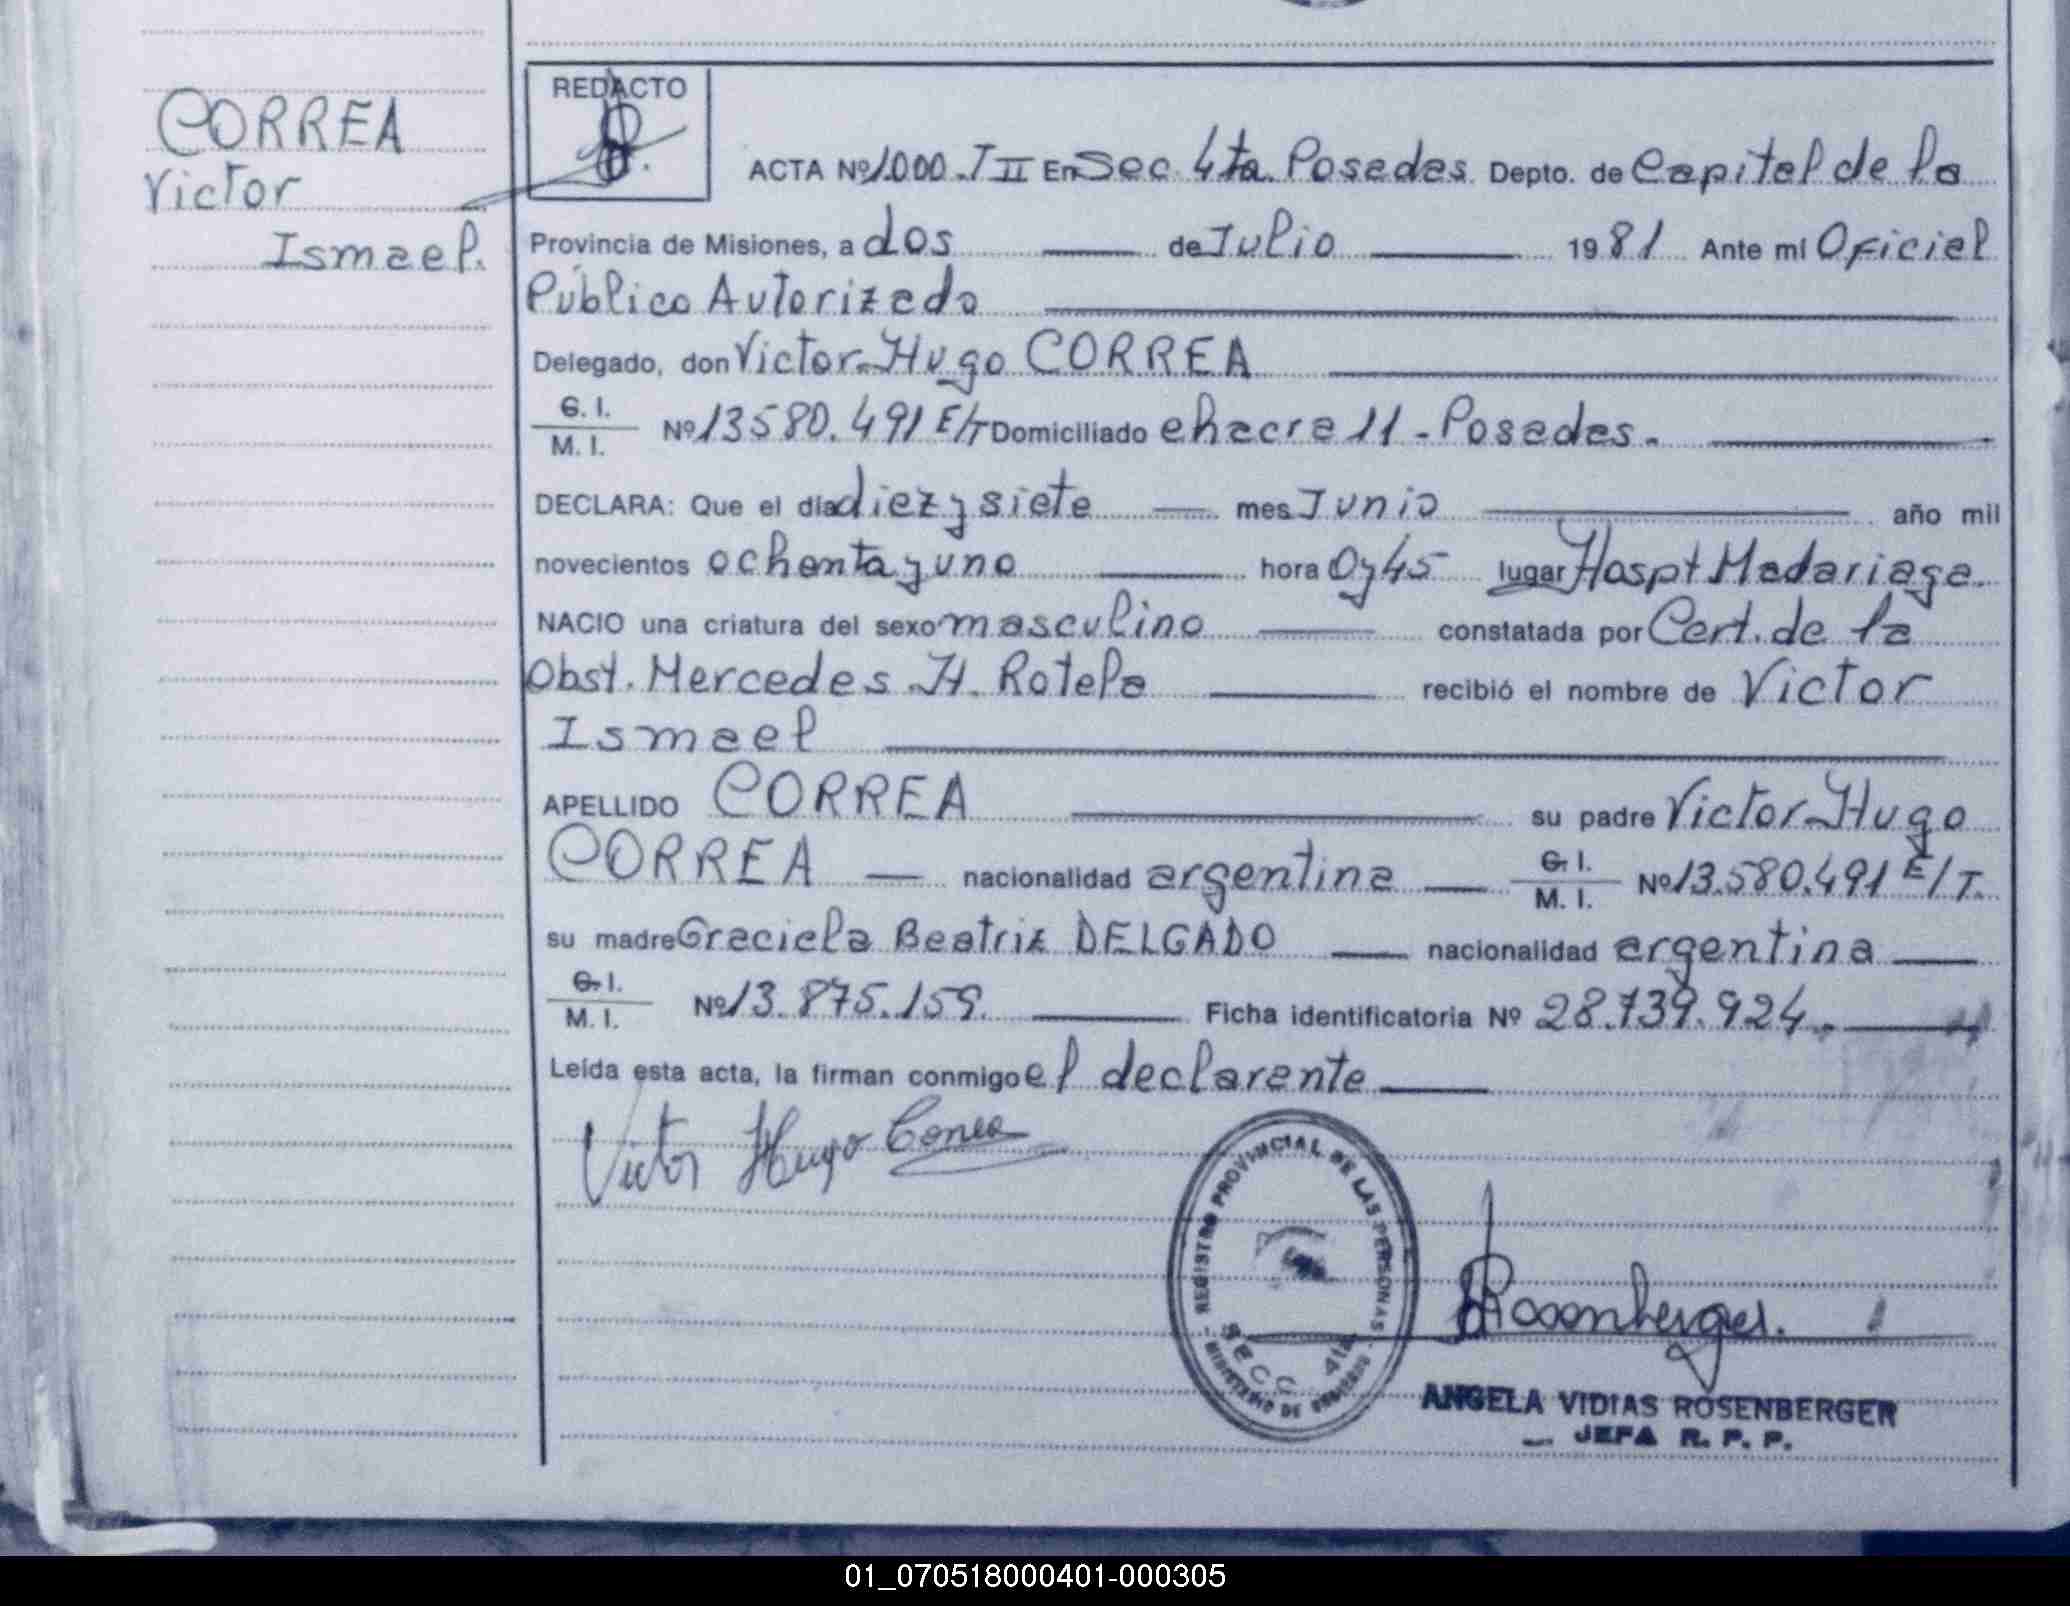 CORREA
Victor
Ismael.
REDACTO
ACTA Nº 1000. T II En Sec. 4ta. Posadas. Depto. de Capital de la
Provincia de Misiones, a dos de Julio 1981 Ante mi Oficial
Público Autorizado
Delegado, don Victor Hugo CORREA
C. I.
M. I. Nº 13580.491 E/T Domiciliado chacra 11 - Posadas.
DECLARA: Que el día diez y siete mes Junio año mil
novecientos ochenta y uno hora 0 y 45 lugar Hospt Madariaga.
NACIO una criatura del sexo masculino constatada por Cert. de la
Obst. Mercedes H. Rotela recibió el nombre de Victor
Ismael
APELLIDO CORREA su padre Victor Hugo
CORREA nacionalidad argentina C. I.
M. I. Nº 13.580.491 E/T.
su madre Graciela Beatriz DELGADO nacionalidad argentina
C. I.
M. I. Nº 13.875.159. Ficha identificatoria Nº 28.739.924.
Leída esta acta, la firman conmigo el declarante
Victor Hugo Correa
REGISTRO PROVINCIAL DE LAS PERSONAS
SECC. 4ta
MINISTERIO DE GOBIERNO
Rosenberger.
ANGELA VIDIAS ROSENBERGER
JEFA R. P. P.
01_070518000401-000305